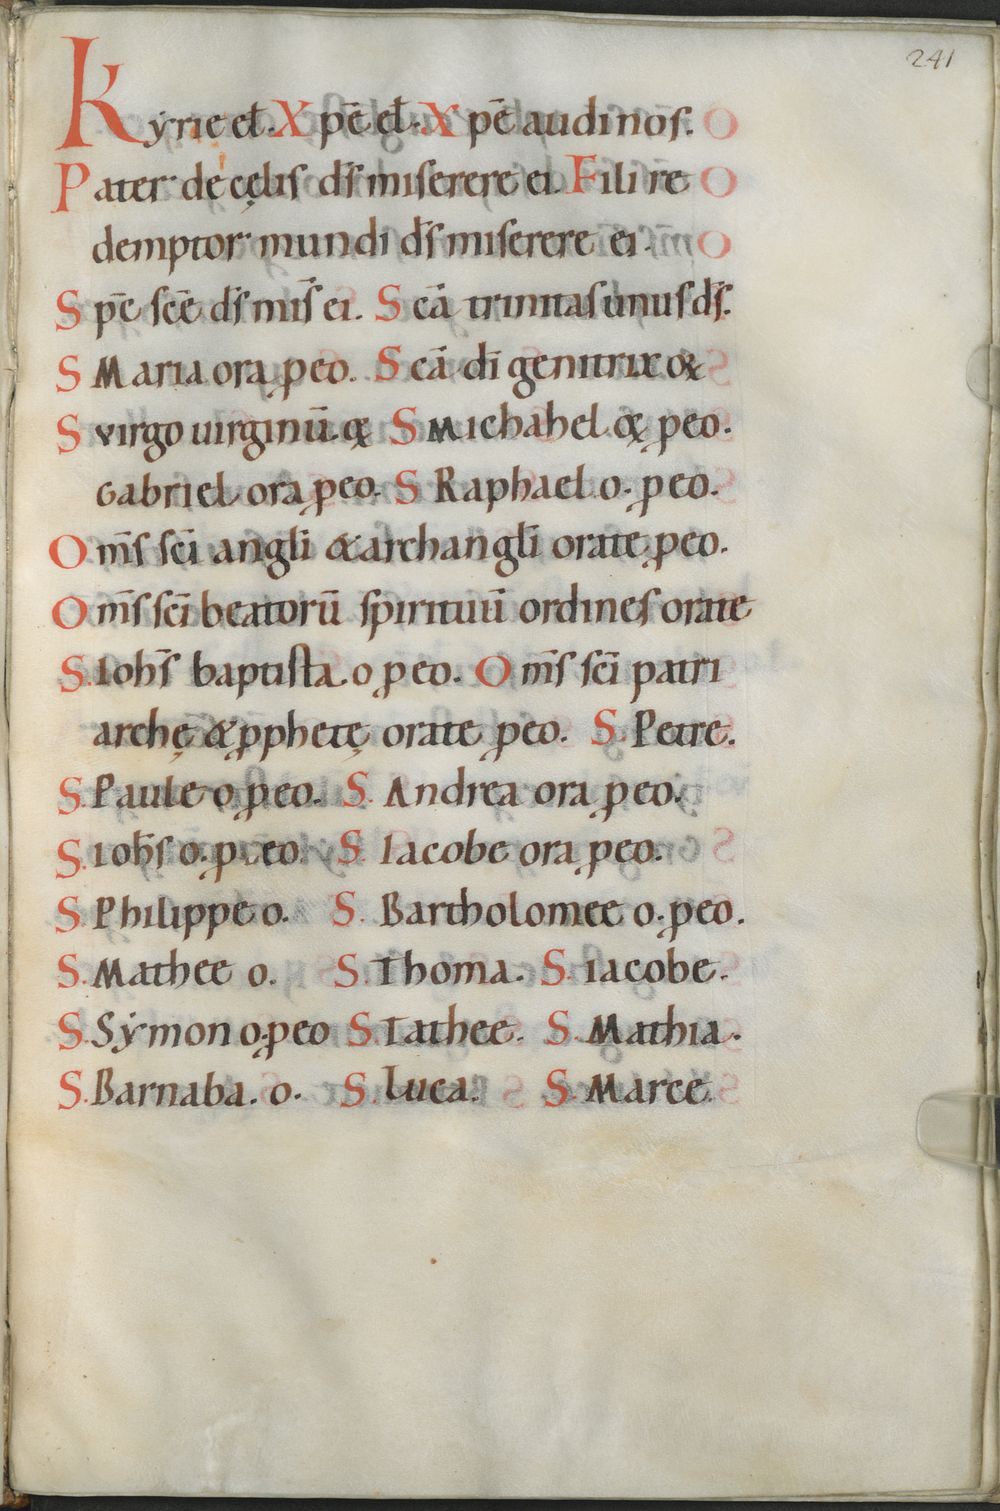 241
Kyrie el. Xpē el. Xpē audi nos.
Pater de cęlis ds̄ miserere ei. Fili re
demptor mundi ds̄ miserere ei.
Spē scē ds̄ mis̄ ei. Scā trinitas unus ds̄.
S Maria ora ꝓ eo. Scā dī genitrix
S virgo uirginū. S Michahel ꝓ eo.
Gabriel ora ꝓ eo. S Raphael o. ꝓ eo.
Oms̄ scī anglī & archanglī orate ꝓ eo.
Oms̄ scī beatorū spirituū ordines orate
S. Iohs̄ baptista o ꝓ eo. Oms̄ scī patri
archę & ꝓphetę orate ꝓ eo. S. Petre.
S. Paule o ꝓ eo. S. Andrea ora ꝓ eo.
S. Iohs̄ o. ꝓ eo S. Iacobe ora ꝓ eo.
S. Philippe o. S. Bartholomee o. ꝓ eo.
S. Mathee o. S. Thoma. S. iacobe.
S. Symon o ꝓ eo S. Tathee. S. Mathia.
S. Barnaba. o. S. Luca. S. Marce.